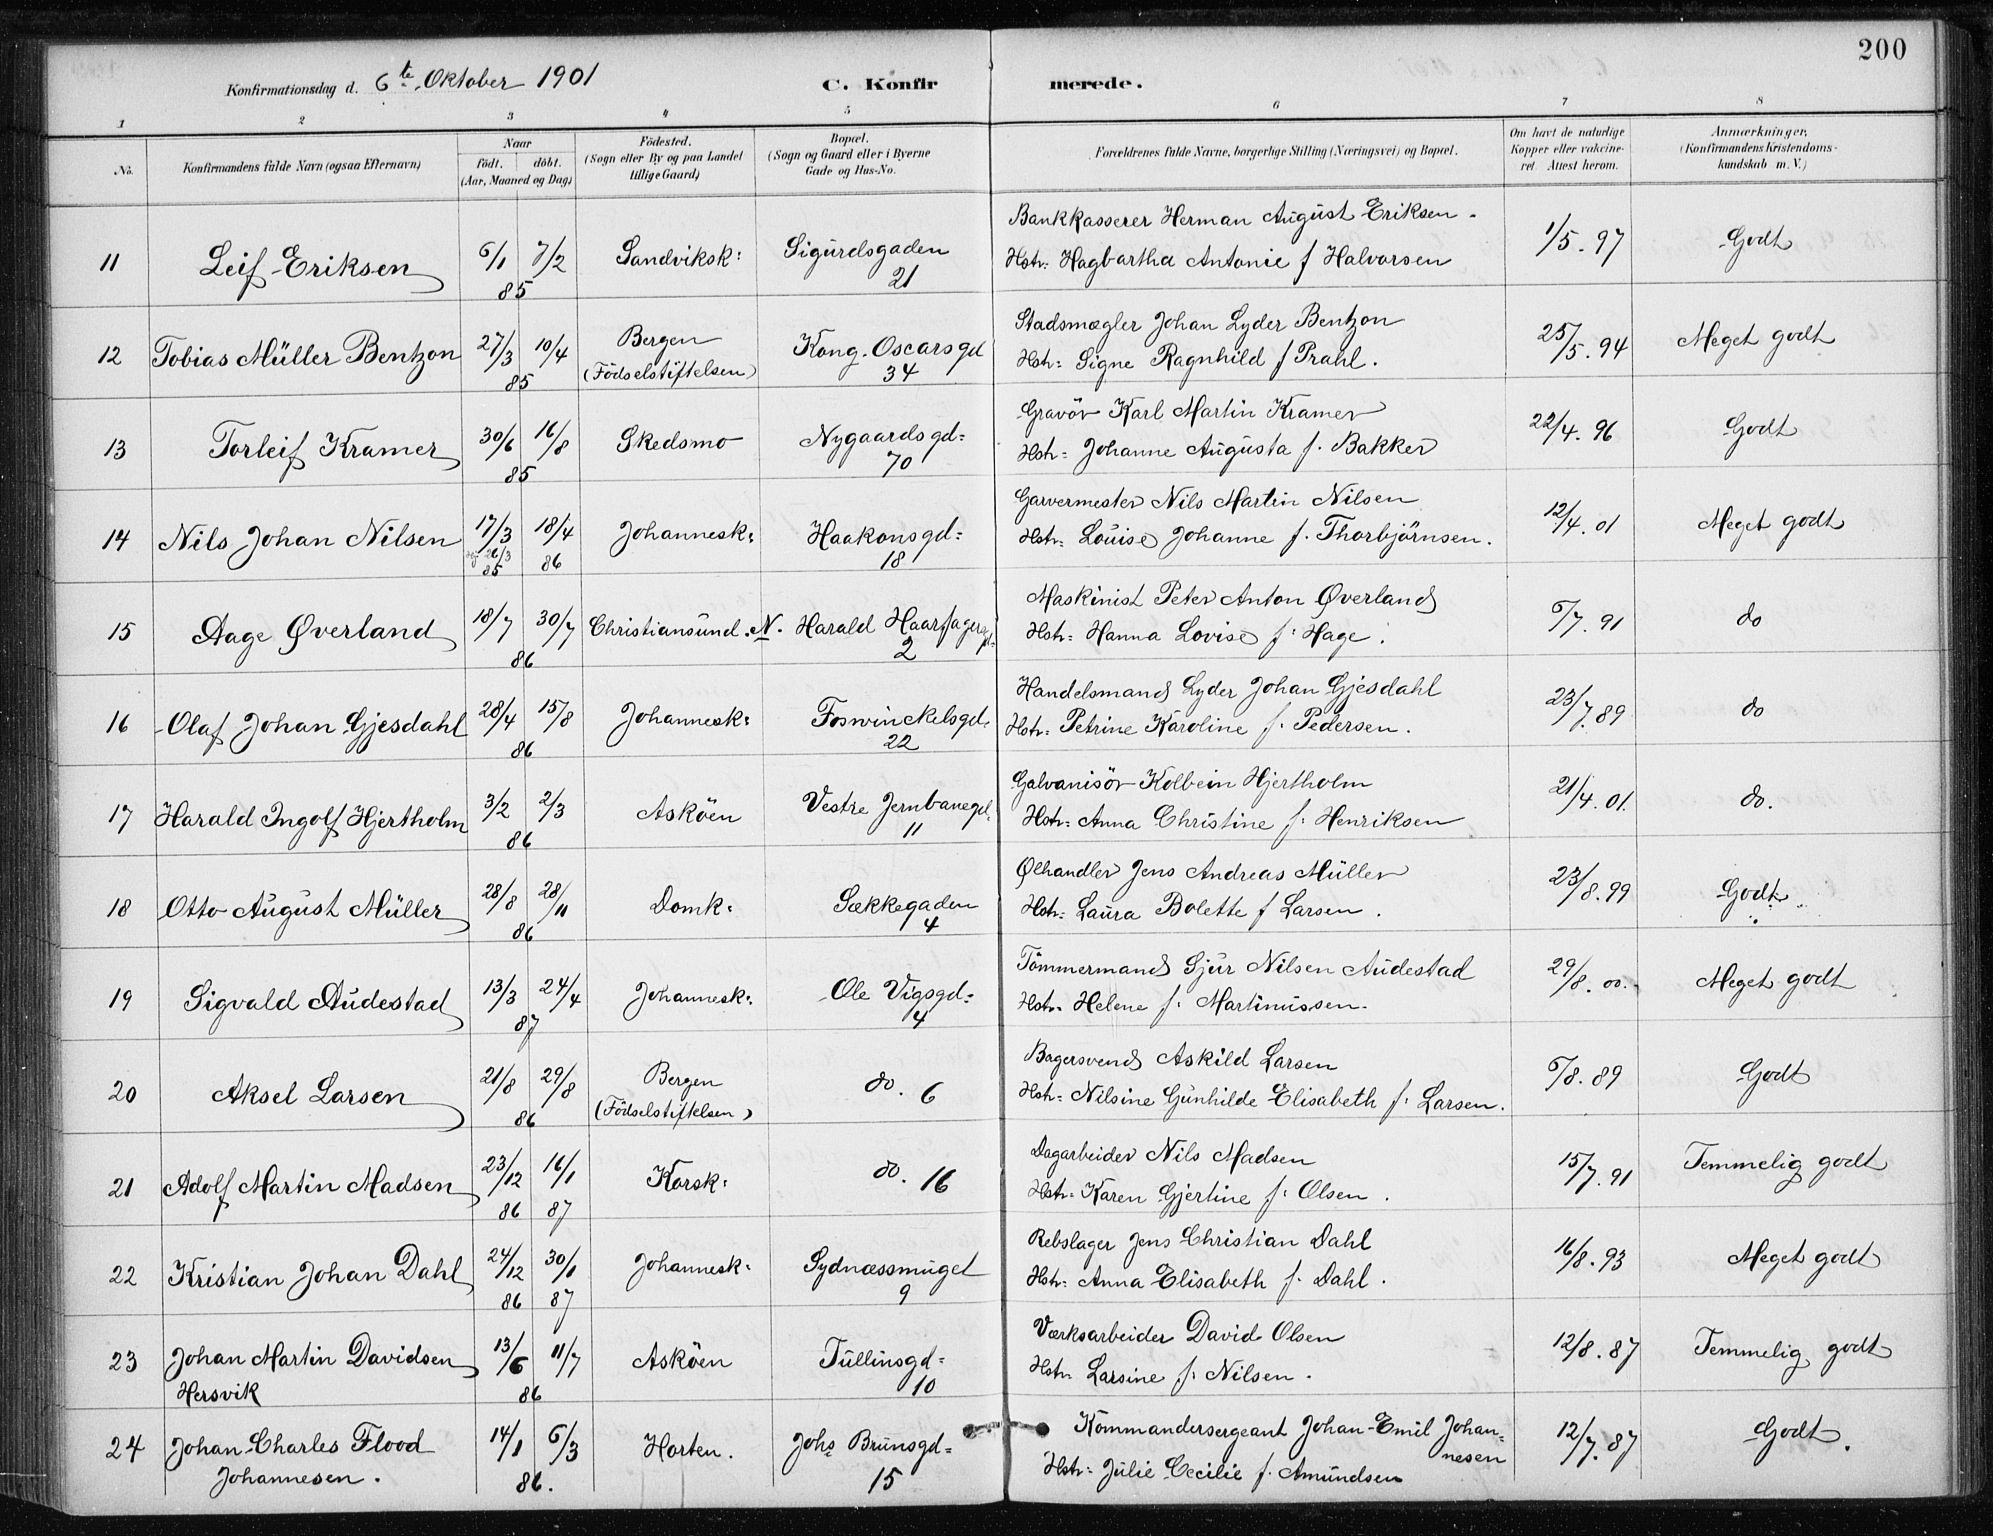 200
Konfirmationsdag d. 6te Oktober 1901 C. Konfirmerede.
1 2 3 4 5 6 7 8
No. Konfirmandens fulde Navn (ogsaa Efternavn) Naar født. døbt. (Aar, Maaned og Dag) Fødested. (Sogn eller By og paa Landet tillige Gaard) Bopæl. (Sogn og Gaard eller i Byerne Gade og Hus-No. Forældrenes fulde Navne, borgerlige Stilling (Næringsvei) og Bopæl. Om havt de naturlige Kopper eller vakcineret. Attest herom. Anmærkninger. (Konfirmandens Kristendomskundskab m. V.)
11 Leif Eriksen 6/1 7/2 85 Sandviksk: Sigurdsgaden 21 Bankkasserer Herman August Eriksen. 1/5. 97 Godt
Hstr: Hagbartha Antonie f Halvorsen
12 Tobias Müller Bentzon 27/3 10/4 85 Bergen (Födselstiftelsen) Kong. Oscarsgd 34 Stadsmægler Johan Lyder Bentzon 25/5. 94 Meget godt
Hstr: Signe Ragnhild f Prahl.
13 Torleif Kramer 30/6 16/8 85 Skedsmo Nygaardsgd: 70 Gravör Karl Martin Kramer 22/4. 96 Godt
Hstr: Johanne Augusta f. Bakker
14 Nils Johan Nilsen 17/3 26/3 85 18/4 86 Johannesk: Haakonsgd: 18 Garvermester Nils Martin Nilsen 12/4. 01 Meget godt
Hstr: Louise Johanne f. Thorbjörnsen.
15 Aage Øverland 18/7 30/7 86 Christiansund. N. Harald Haarfagersgd: 2 Maskinist Peter Anton Øverland 6/7. 91 do
Hstr: Hanna Lovise f: Hage.
16 Olaf Johan Gjesdahl 28/4 15/8 86 Johannesk: Foswinckelsgd. 22 Handelsmand Lyder Johan Gjesdahl 23/7. 89 do
Hstr: Petrine Karoline f. Pedersen.
17 Harald Ingolf Hjertholm 3/2 2/3 86 Asköen Vestre Jernbanegd. 11 Galvanisör Kolbein Hjertholm 21/4. 01. do.
Hstr: Anna Christine f: Henriksen
18 Otto August Müller 28/8 28/11 86 Domk: Sækkegaden 4 Ølhandler Jens Andreas Müller 23/8. 99 Godt
Hstr: Laura Bolette f Larsen.
19 Sigvald Audestad 13/3 24/4 87 Johannesk: Ole Vigsgd: 4 Tömmermand Sjur Nilsen Audestad 29/8. 00. Meget godt
Hstr: Helene f: Martinussen.
20 Aksel Larsen 21/8 29/8 86 Bergen (Födselstiftelsen) do. 6 Bagersvend Askild Larsen 6/8. 89 Godt
Hstr: Nilsine Gunhilde Elisabeth f: Larsen.
21 Adolf Martin Madsen 23/12 86 16/1 87 Korsk: do. 16 Dagarbeider Nils Madsen 15/7. 91 Temmelig godt
Hstr: Karen Gjertine f: Olsen.
22 Kristian Johan Dahl 24/12 86 30/1 87 Johannesk: Sydnæssmuget 9 Rebslager Jens Christian Dahl 16/8. 93 Meget godt
Hstr: Anna Elisabeth f. Dahl.
23 Johan Martin Davidsen Hersvik 13/6 11/7 86 Asköen Tullinsgd: 10 Værksarbeider David Olsen 12/8. 87 Temmelig godt
Hstr: Larsine f. Nilsen.
24 Johan Charles Flood Johannesen. 14/1 6/3 86. Horten. Johs Brunsgd: 15 Kommandersergeant Johan Emil Johannesen 12/7. 87 Godt.
Hstr: Julie Cecilie f. Amundsen